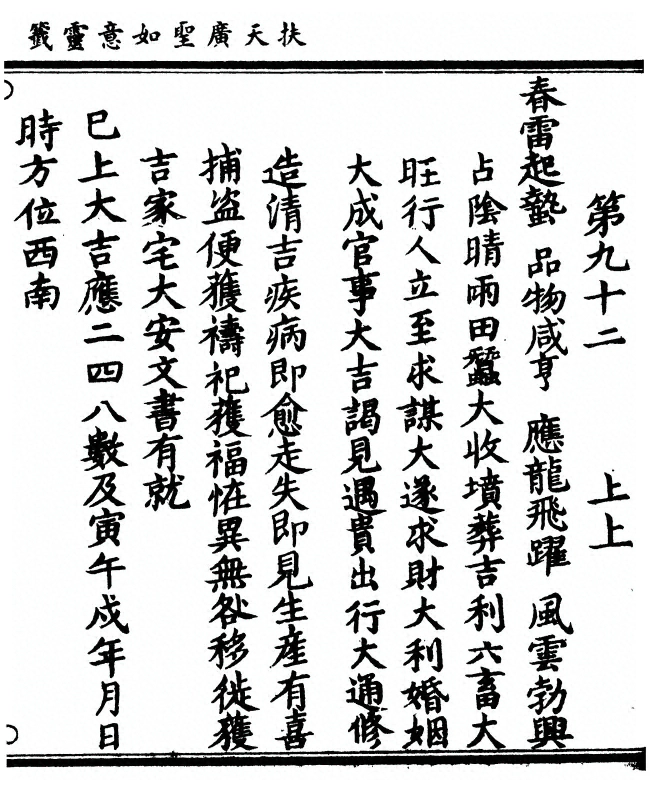 扶天廣聖如意靈籤
第九十二 上上
春雷起蟄 品物咸亨 應龍飛躍 風雲勃興
占陰晴雨田蠶大收墳葬吉利六畜大
旺行人立至求謀大遂求財大利婚姻
大成官事大吉謁見遇貴出行大通修
造清吉疾病即愈走失即見生產有喜
捕盜便獲禱祀獲福恠異無咎移徙獲
吉家宅大安文書有就
巳上大吉應二四八數及寅午戍年月日
時方位西南